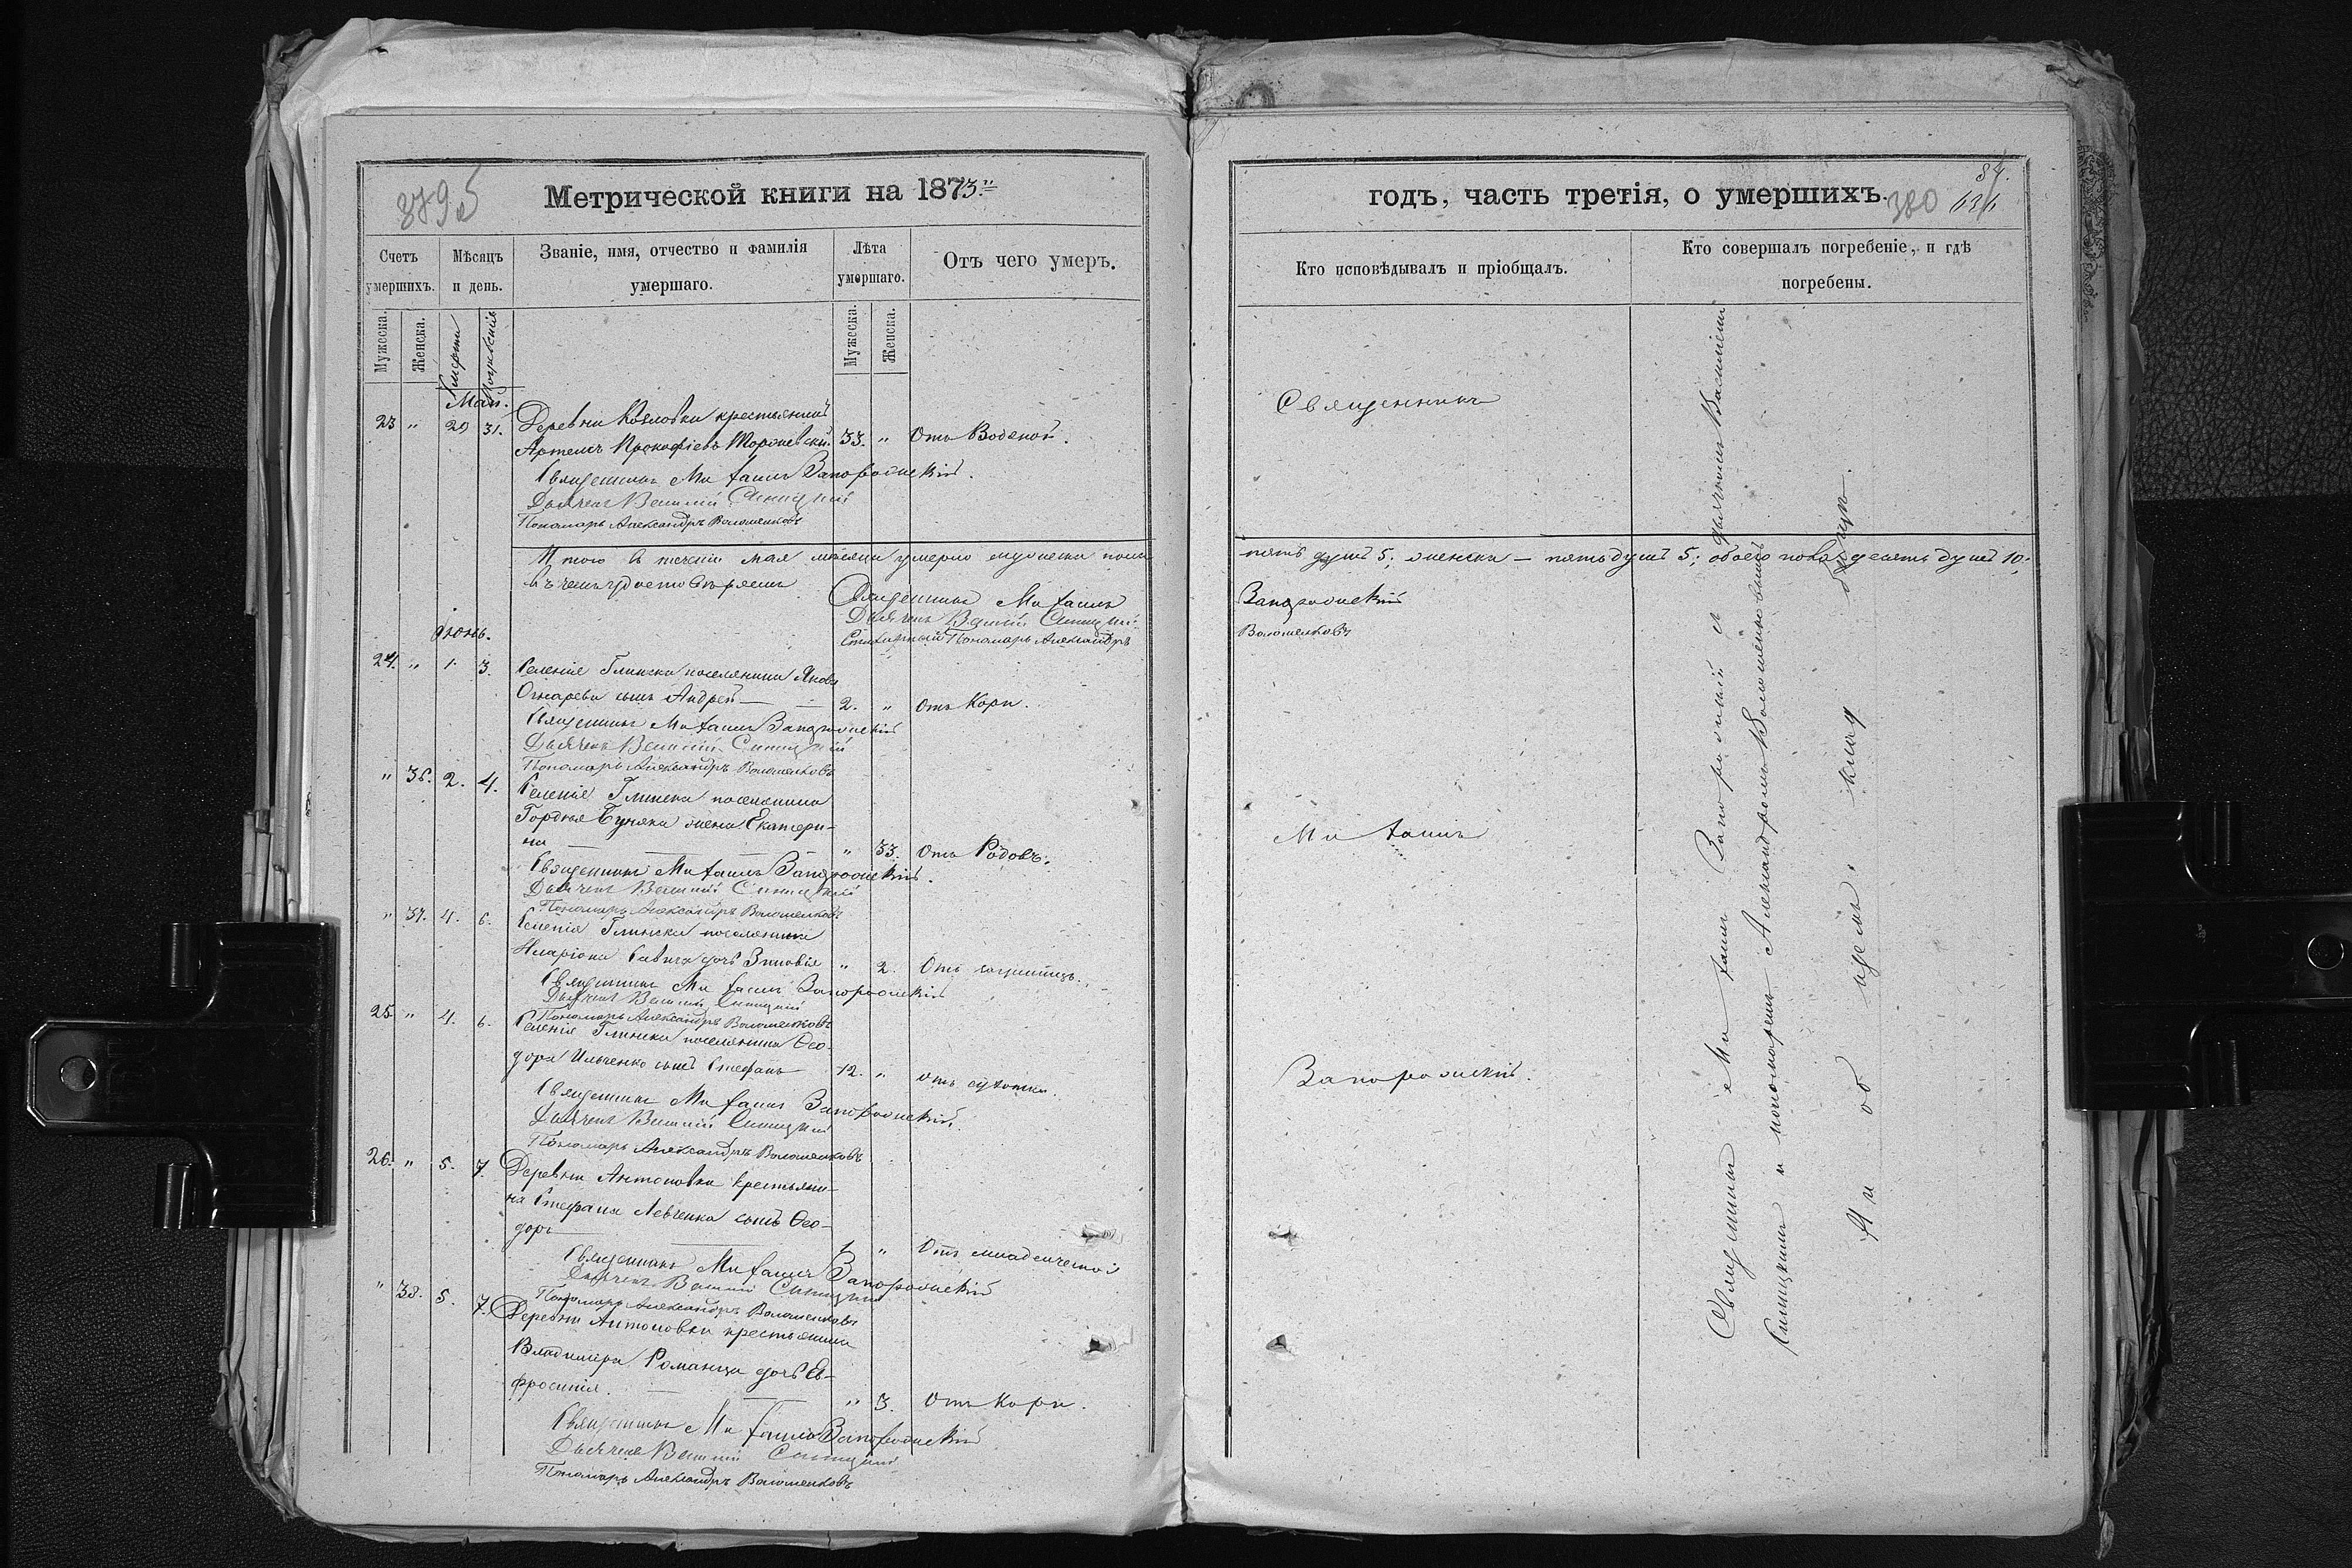 379 5
Метрической книги на 1873
Счетъ умершихъ.
Мѣсяцъ и день.
Званіе, имя, отчество и фамилія умершаго.
Лѣта умершаго.
Отъ чего умеръ.
Мужеска.
Женска.
Смерти
Погребенія
Мужеска.
Женска.
Май.
23 " 29 31. Деревни Козловки крестьянинъ
Артемъ Прокофіевъ 33. " Отъ Водяной.
Священникъ Михаилъ Запорожскій.
Дьячекъ Василій Синицкій
Пономарь Александръ Волошенковъ
Итого въ теченіи мая мѣсяца умерло мужеска пола
въ чемъ удостовѣряемъ
Священникъ Михаилъ
Дьячекъ Василій Синицкій
Пономарь Александръ
Іюнь.
24. " 1. 3. Селенія Глинска поселянина Якова
сынъ Андрей — — 2. " Отъ Кори.
Священникъ Михаилъ Запорожскій
Дьячекъ Василій Синицкій
Пономарь Александръ Волошенковъ
" 36. 2. 4. Селенія Глинска поселянина
Гордѣя Буняка жена Екатери-
на — " 33. Отъ Родовъ.
Священникъ Михаилъ Запорожскій.
Дьячекъ Василій Синицкій
Пономарь Александръ Волошенковъ
" 37. 4. 6. Селенія Глинска поселянина
Иларіона Савича дочь Зиновія " 2. Отъ
Священникъ Михаилъ Запорожскій
Дьячекъ Василій Синицкій
Пономарь Александръ Волошенковъ
25. " 4. 6. Селенія Глинска поселянина Ѳео-
дора Ильченко сынъ Стефанъ 12. " отъ сухотки.
Священникъ Михаилъ Запорожскій.
Дьячекъ Василій Синицкій
Пономарь Александръ Волошенковъ
26. " 5. 7. Деревни Антоновки крестьяни-
на Стефана Левченка сынъ Ѳео-
доръ — 1 " Отъ младенческой
Священникъ Михаилъ Запорожскій
Дьячекъ Василій Синицкій
Пономарь Александръ Волошенковъ
" 38. 5. 7. Деревни Антоновки крестьянина
Владиміра Романца дочь Ев-
фросинія. — " 3. Отъ Кори.
Священникъ Михаилъ Запорожскій
Дьячекъ Василій Синицкій
Пономарь Александръ Волошенковъ
годъ, часть третія, о умершихъ.
380
84.
Кто исповѣдывалъ и пріобщалъ.
Кто совершалъ погребеніе, и гдѣ погребены.
Священникъ
пять душъ 5; женска — пять душъ 5; обоего пола десять душъ 10;
Запорожскій
Волошенковъ
Михаилъ
Запорожскій.
Священникъ Михаилъ Запорожскій съ дьячкомъ Василіемъ
Синицкимъ и пономаремъ Александромъ Волошенковымъ
На общемъ кладбищѣ.